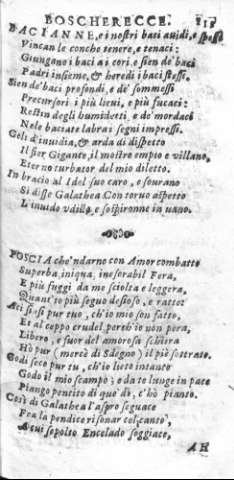 BOSCHERECCE. 815
BACIANNE, e i nostri baci auidi, e spessi
Vincan le conche tenere, e tenaci:
Giungono i baci a i cori, e sien de' baci
Padri insieme, & heredi i baci stessi.
Sien de' baci profondi, e de' sommessi
Precursori i più lieui, e più fucaci:
Restin degli humidetti, e de' mordaci
Nele baciate labra i segni impressi.
Geli d'inuidia, & arda di dispetto
Il fier Gigante, il mostro empio e villano,
Eterno turbator del mio diletto.
In braccio al Idol suo caro, e sourano
Si disse Galathea Con toruo aspetto
L'inuido vdilla, e sospironne in vano.
POSCIA che 'ndarno con Amor combatto
Superba, iniqua, inesorabil Fera,
E più fuggi da me sciolta e leggera,
Quant'io più seguo desioso, e ratto:
Aci si-si pur tuo, ch'io mio son fatto,
Et al ceppo crudel perch'io non pera,
Libero, e fuor del amorosa schiera
Hò pur (mercè di Sdegno) il piè sottratto.
Godi seco pur tu, ch'io lieto intanto
Godo il mio scampo; e da te lunge in pace
Piango pentito di que' dì, c'hò pianto.
Così di Galathea l'aspro seguace
Fea la pendice risonar col canto,
A cui sepolto Encelado soggiace,
AH